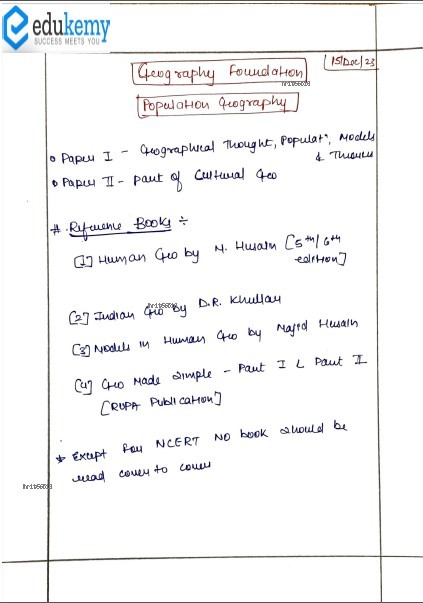 edukemy
SUCCESS MEETS YOU
15/Dec/23
Geography Foundation
Population Geography
• Paper I - Geographical Thought, Populatn, Models
& Theories
• Paper II - part of Cultural Geo
# Reference Books ÷
[1] Human Geo by M. Husain [5th/6th
edition]
[2] Indian Geo by D.R. Khullar
[3] Models in Human Geo by Majid Husain
[4] Geo Made Simple - Part I & Part II
[RUPA Publication]
* Except for NCERT No book should be
read cover to cover